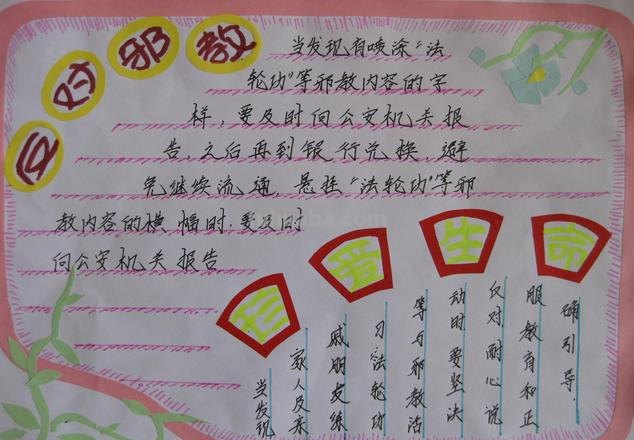 反对邪教
当发现有喷涂“法
轮功”等邪教内容的字
样，要及时向公安机关报
告，之后再到银行兑换，避
免继续流通，悬挂“法轮功”等邪
教内容的横幅时，要及时
向公安机关报告
珍爱生命
当发现
家人及亲
戚朋友练
习法轮功
等与邪教活
动时要坚决
反对耐心说
服教育和正
确引导.